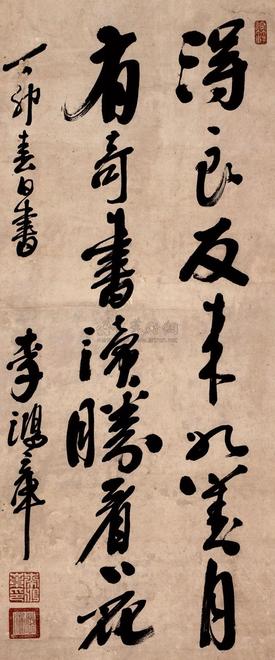 得良友来如对月
有奇書讀勝看花
丁卯春日書 李鴻章